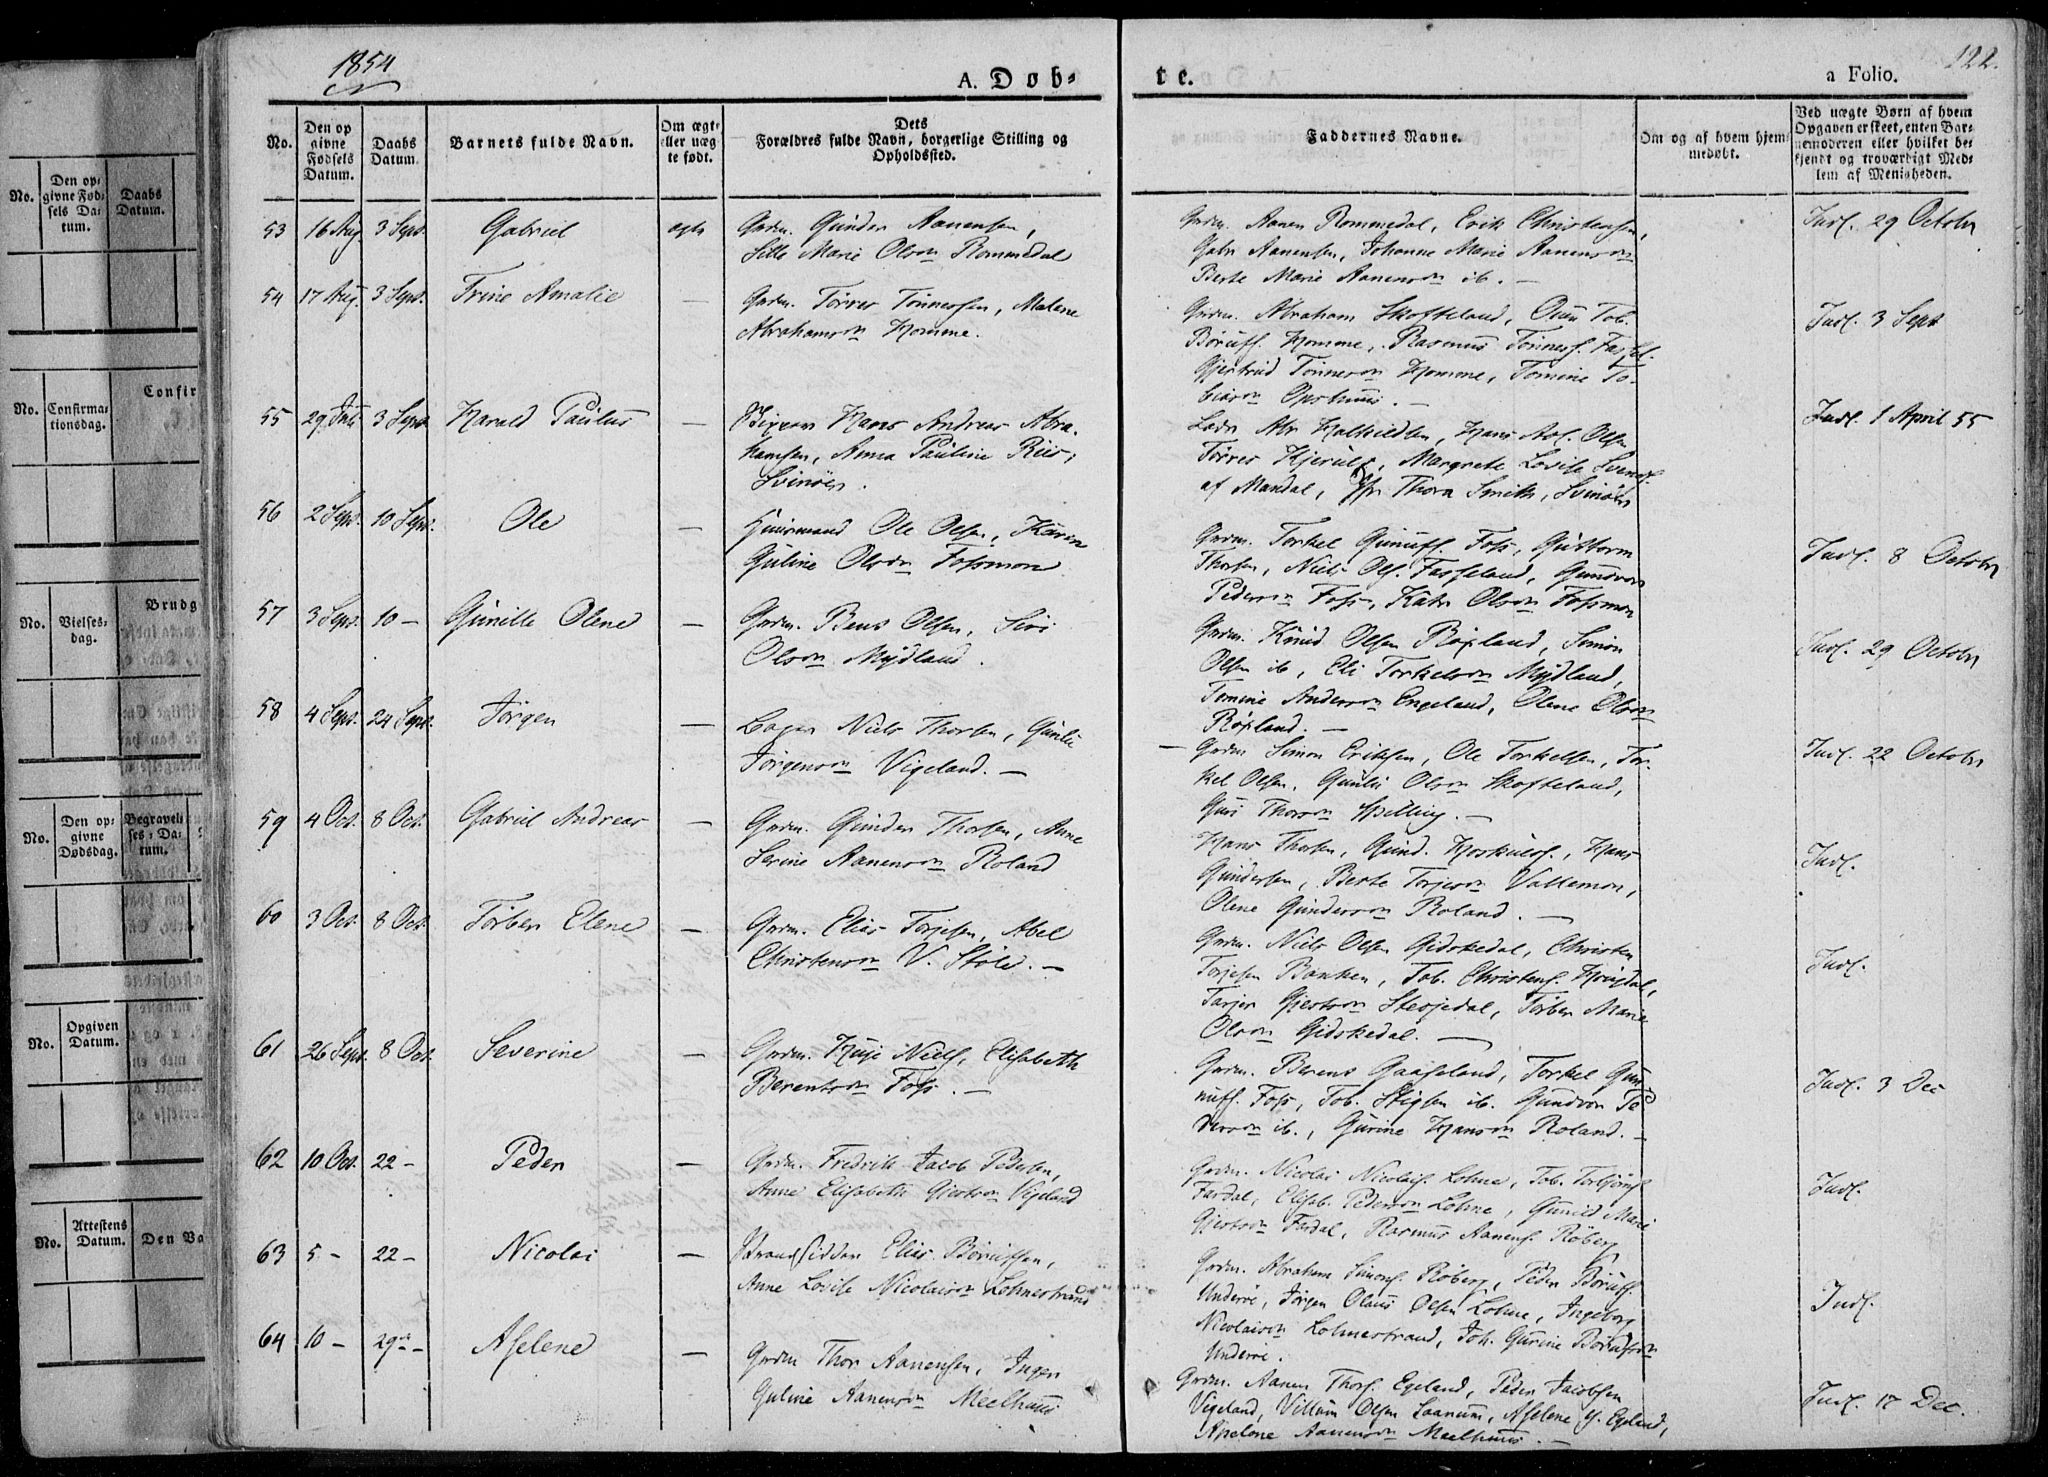 1854
A. Døb-
te.
a Folio.
122.
No.
Den op
givne
Fødsels
Datum.
Daabs
Datum.
Barnets fulde Navn.
Om ægt-
eller uæg
te født.
Dets
Forældres fulde Navn, borgerlige Stilling og
Opholdssted.
Faddernes Navne.
Om og af hvem hjem-
medøbt.
Ved uægte Børn af hvem
Opgaven er skeet, enten Bar-
nemoderen eller hvilket be-
kjendt og troværdigt Med-
lem af Menigheden.
53 16 Aug. 3 Sept. Gabriel ægte
Grdm. Gunder Aanensen,
Marie Olsdn Rommedal
Grdm. Aanen Rommedal, Erik Christensen,
Gabr Aanensen, Johanne Marie Aanensdn
Berte Marie Aanensdn ib. —
Indl. 29 Octobr
54 17 Aug. 3 Sept. Trine Amalie —
Grdm. Tørres Tønnessen, Malene
Abrahamsdn Homme.
Grdm. Abraham Skofteland, Tob.
Børuff. Homme, Rasmus Tønness.
Gjertrud Tønnesdn Homme, Tomine To-
biasdn Opshuus. —
Indl. 3 Sept
55 29 Juli 3 Sept. Harald Paulus —
Hans Andreas Abra-
hamsen, Anna Pauline Riis,
Svinøer.
Lods Abr Halvildsen, Hans Ol. Olsen
Tørres Kjerulf, Margrete Lovise Svends.
af Mandal, Jfr Thora Smith, Svinøer
Indl. 1 April 55
56 2 Sept. 10 Sept. Ole —
Huusmand Ole Olsen, Karen
Guline Olsdn Fossmon
Grdm. Torkel Gunuff. Foss, Guttorm
Thorsen, Niels Ols. Fasseland, Gundvor
Pedersdn Foss, Katr Olsdn Fossmon
Indl. 8 Octobr
57 3 Sept. 10 — Gunille Olene —
Grdm. Bens Olsen, Siri
Olsdn Mydland.
Grdm. Knud Olsen Røpland, Simon
Olsen ib, Eli Torkelsdn Mydland,
Tomine Andersdn Engeland, Olene Olsdn
Røpland. —
Indl. 29 Octobr
58 4 Sept. 24 Sept. Jørgen —
Niels Thorsen, Gunlei
Jørgensdn Vigeland. —
— Grdm Simon Eriksen, Ole Torkelsen, Tor-
kel Olsen, Gunlei Olsdn Skofteland,
Guri Thorsdn Spilling. —
Indl. 22 Octobr
59 4 Oct. 8 Oct. Gabriel Andreas —
Grdm. Gunder Thorsen, Anne
Serine Aanensdn Roland
Hans Thorsen, Gund. Hans
Gundersen, Berte Torjesdn Vallemon,
Olene Gundersdn Roland. —
Indl.
60 3 Oct. 8 Oct. Torber Elene —
Grdm. Elias Torjesen, Abel
Christensdn V. Støle. —
Grdm. Niels Olsen Gidskedal, Christen
Torjesen Banken, Tob. Christens.
Tarjer Gjertsdn Stedjedal, Torber Marie
Olsdn Gidskedal. —
Indl.
61 26 Sept. 8 Oct. Severine —
Grdm. Huje Niels, Elisabeth
Berentsdn Foss. —
Grdm. Berens Gaaseland, Torkel Gun-
nuff. Foss, Tob. Stigsen ib. Gundvor Pe-
dersdn ib., Gurine Hansdn Roland. —
Indl. 3 Dec
62 10 Oct. 22 — Peder —
Grdm. Fredrik Jacob Pedersen,
Anne Elisabeth Gjertsdn Vigeland
Grdm. Nicolai Nicolais. Lohne, Tob. Torbjørns.
Fardal, Elisab. Pedersdn Lohne, Gunild Marie
Gjertsdn Fardal, Rasmus Aanens. Røberg
Indl.
63 5 — 22 — Nicolai —
Strandsidder Elias Børuffsen,
Anne Lovise Nicolaisdn Lohnestrand
Grdm. Abraham Simons. Røberg, Peder Børuffs.
Underøe, Jørgen Olaus Olsen Lohne, Ingeborg
Nicolaisdn Lohnestrand, Joh. Gurine Børufsdn
Underøe.
Indl.
64 10 — 29de — Aselene —
Grdm Thor Aanensen, Inger
Guline Aanensdn Meelhuus
Grdm. Aanen Thors. Egeland, Peder Jacobsen
Vigeland, Villum Olsen Laanum, Aselene Y. Egeland,
Aselene Aanensdn Meelhuus. —
Indl. 17 Dec.
No.
Den op-
givne Fød-
sels Da-
tum.
Daabs
Datum.
Confir
No.
Confirma-
tionsdag.
Brudg
No.
Vielses-
dag.
No.
Den op-
givne
Dødsdag.
Begravel-
ses-Da-
tum.
No.
Opgiven
Datum.
No.
Attestens
Datum.
Den Va